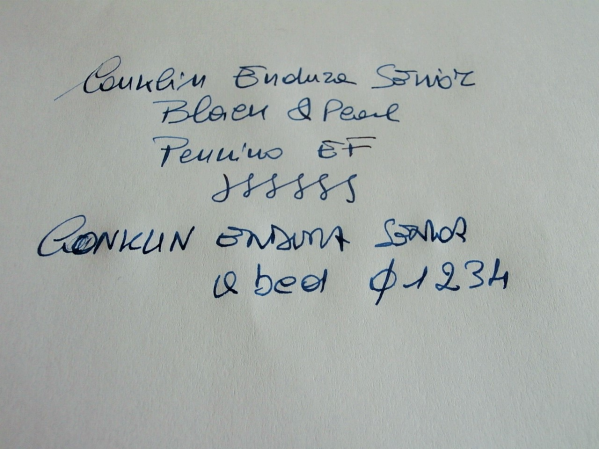 Conklin Endura Senior
Black & Pearl
Pennino EF
SSSSSS
CONKLIN ENDURA SENIOR
a bcd φ1234